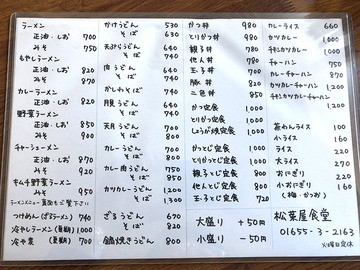 ラーメン
正油・しお 700
みそ 750
もやしラーメン
正油・しお 820
みそ 870
カレーラーメン
正油・しお 820
野菜ラーメン
正油・しお 850
みそ 900
チャーシューメン
正油・しお 870
みそ 920
キムチ野菜ラーメン
みそ 950
つけめん(ざるラーメン) 740
冷やしラーメン(夏期) 700
冷やし(夏期) 700
かけうどん 530
そば 630
天ぷらうどん 640
そば
肉うどん 640
そば
かしわそば 740
月見うどん 640
そば
天月うどん 700
そば 800
カレー肉うどん 750
そば
カツカレーうどん 1,200
そば
ざるうどん 670
そば
鍋焼きうどん 800
かつ丼 980
とりかつ丼 980
親子丼
他人丼
玉子丼
豚丼
二色丼 850
かつ定食 1,100
とりかつ定食 1,100
しょうが焼定食 1,000
かつとじ定食 1,100
とりかつとじ定食 1,100
親子とじ定食
他人とじ定食
玉子とじ定食 720
大盛り +50円
小盛り -50円
カレーライス 660
カツカレー 1,000
チキンカツカレー 1,000
チャーハン 750
カレーチャーハン
カツカレーチャーハン 1,200
チキンカツカレーチャーハン 1,200
茶わんライス 100
小ライス 160
ライス 220
大ライス 270
おにぎり 220
小おにぎり 160
(梅・かつお)
松葉屋食堂
01655-3-2163
火曜日定休